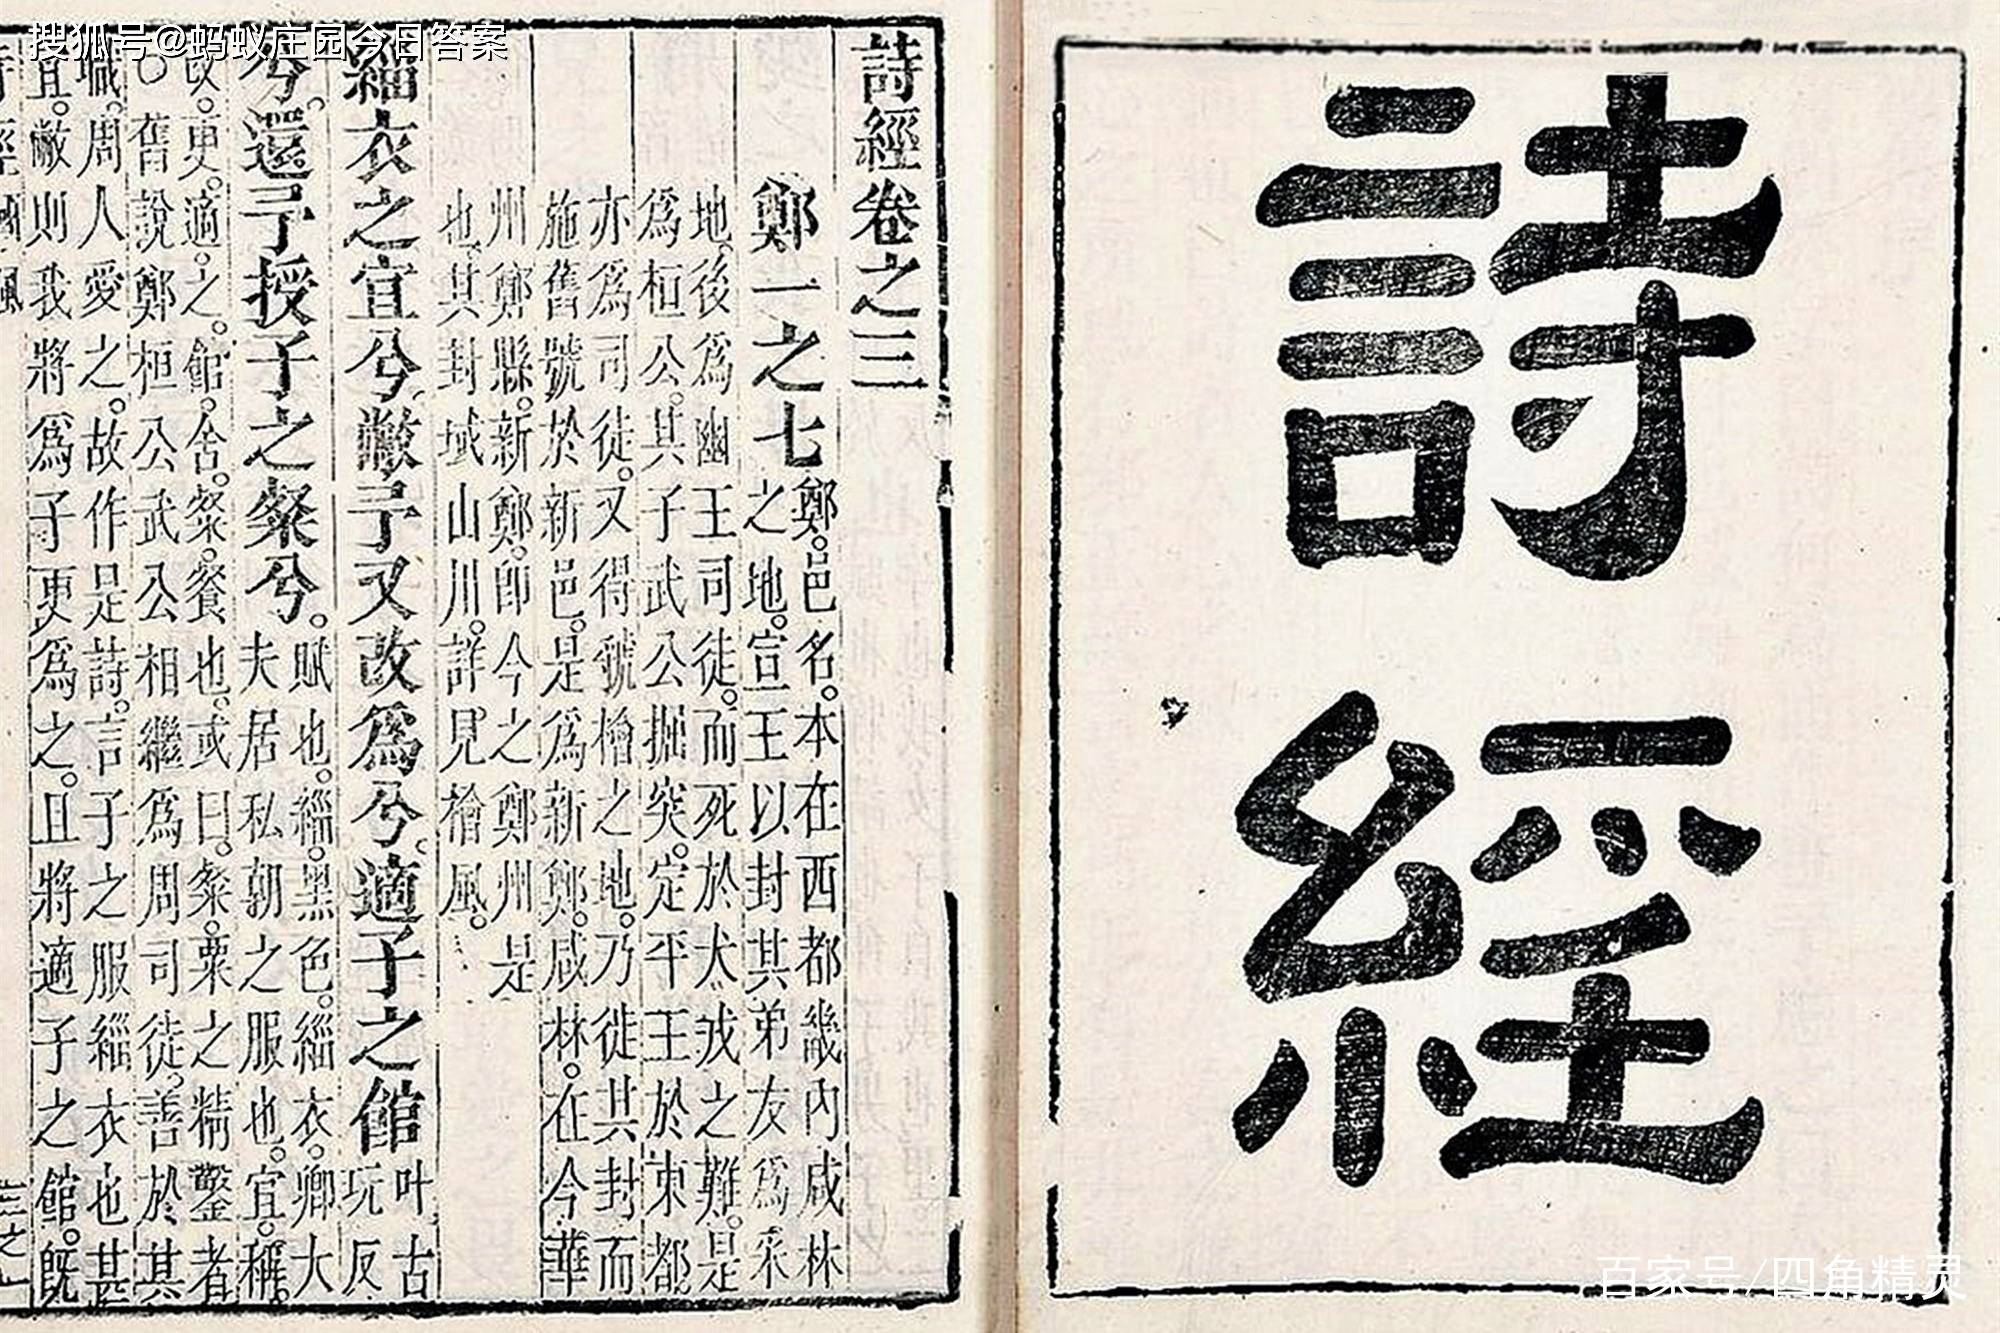 搜狐号@蚂蚁庄园今日答案
詩經
詩經卷之三
鄭一之七
鄭邑名。本在西都畿內咸林
之地。宣王以封其弟友爲采
地。後爲幽王司徒。而死於犬戎之難。是
爲桓公。其子武公掘突。定平王於東都
亦爲司徒。又得虢檜之地。乃徙其封而
施舊號於新邑。是爲新鄭。咸林。在今華
州鄭縣。新鄭。卽今之鄭州是
也。其封域山川。詳見檜風。
緇衣之宜兮。敝予又改爲兮。適子之館
叶古
玩反
兮。還予授子之粲兮。
賦也。緇。黑色。緇衣。卿大
夫居私朝之服也。宜。稱。
改。更。適。之。館。舍。粲。餐也。或曰。粲。粟之精鑿者
○舊說鄭桓公武公相繼爲周司徒。善於其
職。周人愛之。故作是詩。言子之服緇衣也甚
宜。敝則我將爲子更爲之。且將適子之館。旣
百家号/四角精灵